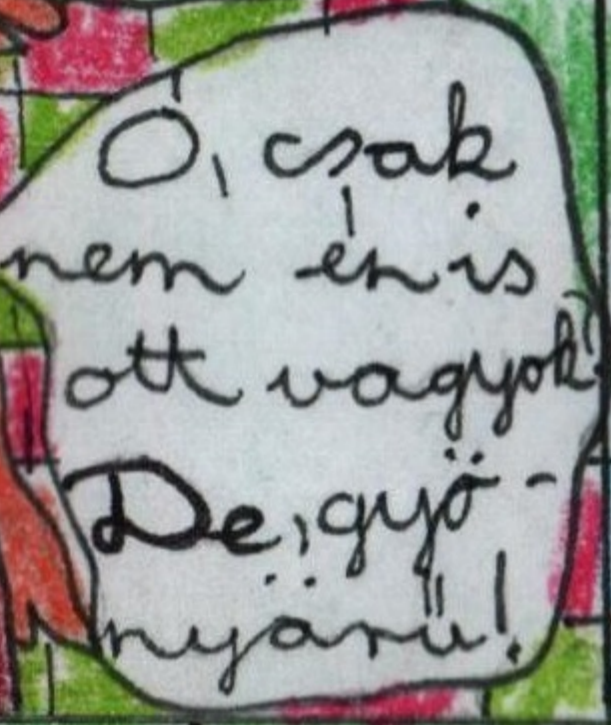 Ó, csak
nem én is
ott vagyok?
De, gyö-
nyörű!